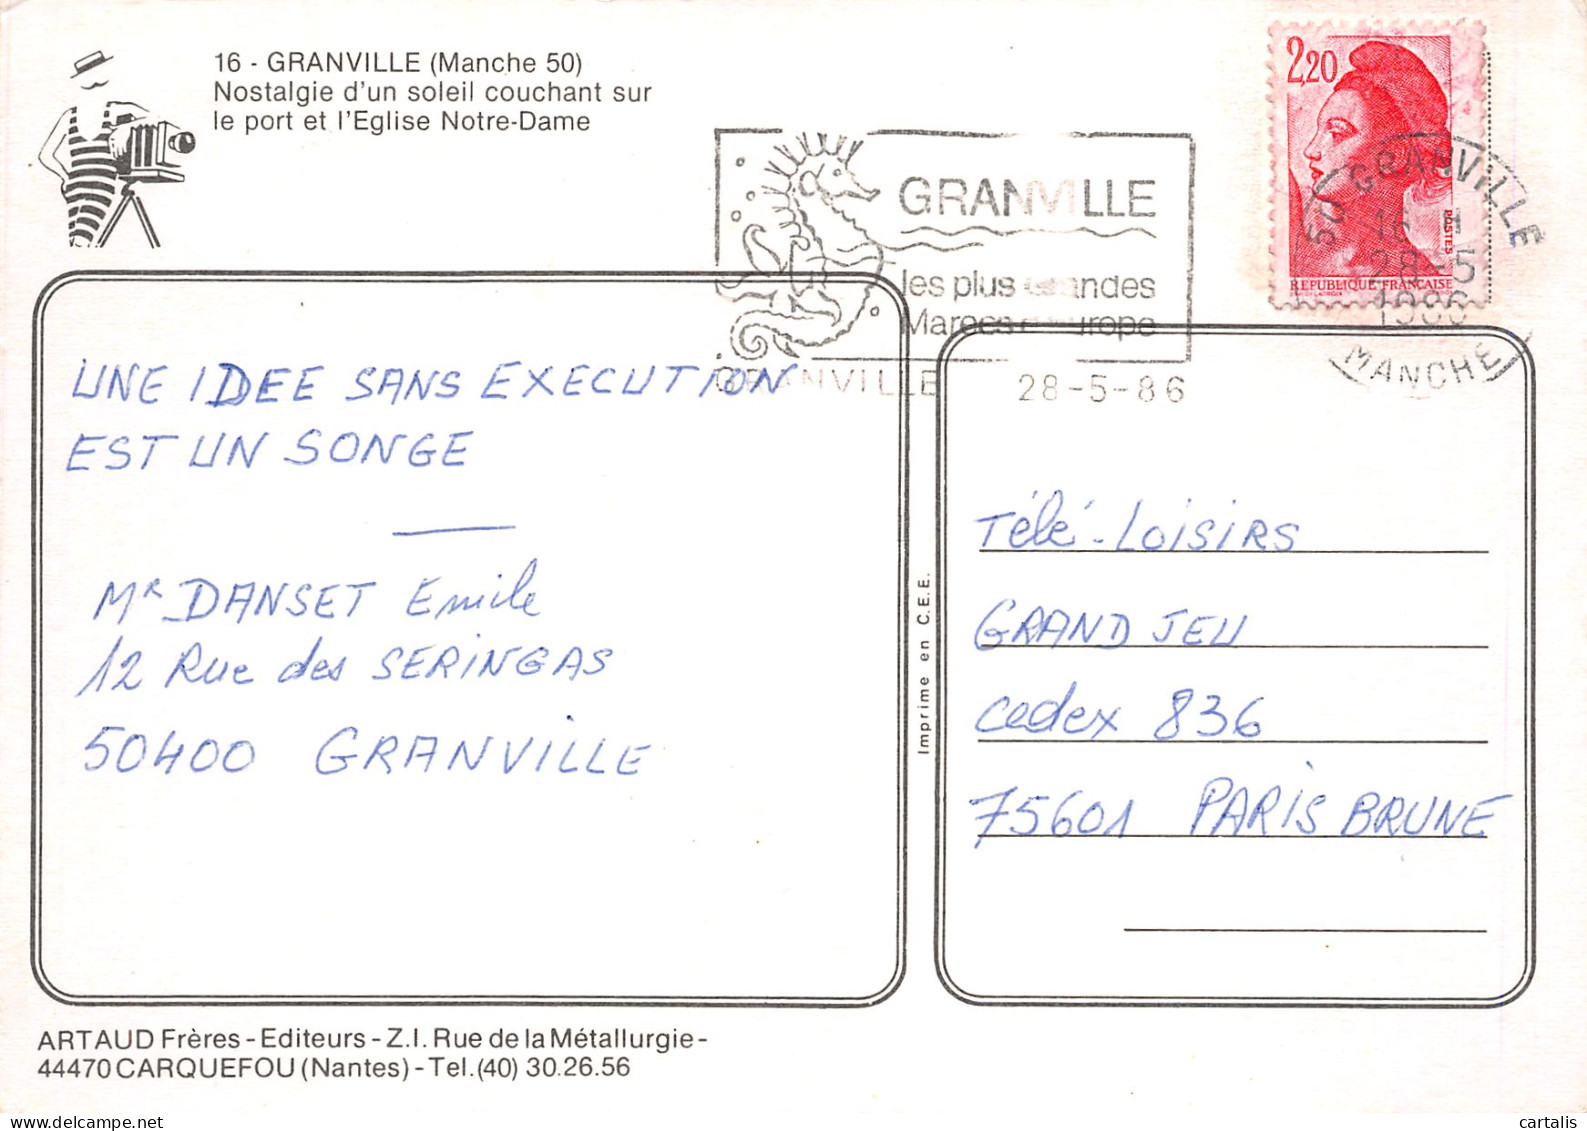 16 - GRANVILLE (Manche 50)
Nostalgie d'un soleil couchant sur
le port et l'Eglise Notre-Dame
2,20
POSTES
REPUBLIQUE FRANÇAISE
GRANVILLE
les plus grandes
Marees d'Europe
GRANVILLE 28-5-86
50 GRANVILLE
16 H
28-5
1986
MANCHE
UNE IDEE SANS EXECUTION
EST UN SONGE
Mr DANSET Emile
12 Rue des SERINGAS
50400 GRANVILLE
Imprime en C.E.E.
Télé-LOISIRS
GRAND JEU
Cedex 836
75601 PARIS BRUNE
ARTAUD Frères - Editeurs - Z.I. Rue de la Métallurgie -
44470 CARQUEFOU (Nantes) - Tel. (40) 30.26.56
cartalis